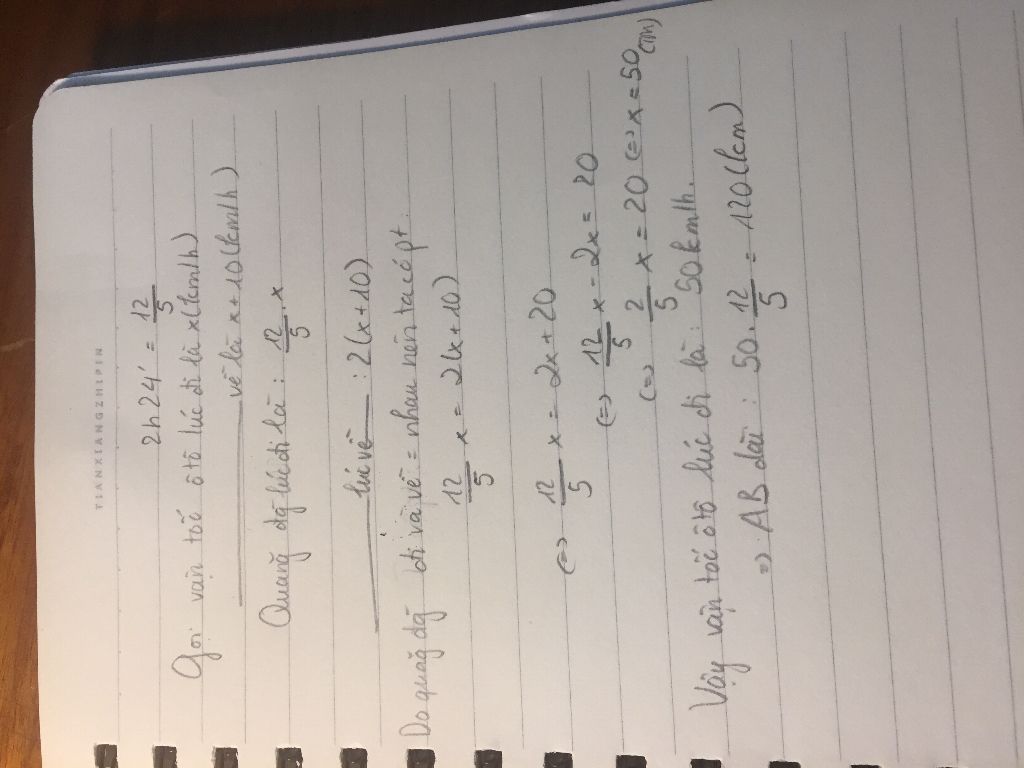 TIANXIANGZHIPIN
2h24' = 12/5
Gọi vận tốc ôtô lúc đi là x(km/h)
về là x+10(km/h)
Quãng đg lúc đi là: 12/5 . x
lúc về : 2(x+10)
Do quãg đg đi và về = nhau nên ta có pt.
12/5 x = 2(x+10)
(=) 12/5 x = 2x+20
(=) 12/5 x - 2x = 20
(=) 2/5 x = 20 (=) x = 50 (TM)
Vậy vận tốc ôtô lúc đi là: 50km/h.
=> AB dài : 50. 12/5 = 120(km)